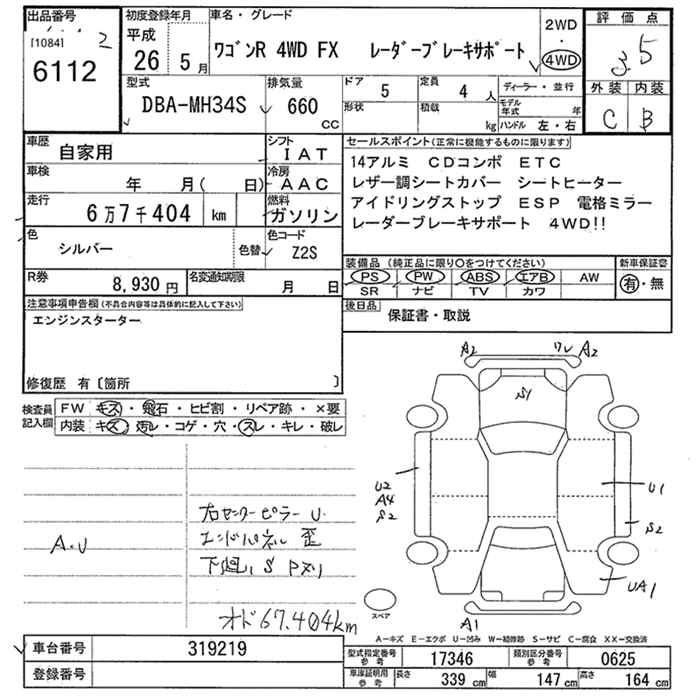 出品番号
[1084] 2
6112
初度登録年月
平成
26 5月
車名・グレード
ワゴンR 4WD FX レーダーブレーキサポート
2WD
・
4WD
評価点
3.5
外装 内装
C B
型式
DBA-MH34S
排気量
660
cc
ドア 5
形状
定員 4 人
積載 kg
ディーラー・並行
モデル年式 年
ハンドル 左・右
車歴
自家用
車検
年 月( 日)
走行
6万7千404 km
色
シルバー
色替
シフト
IAT
冷房
AAC
燃料
ガソリン
色コード
Z2S
セールスポイント(正常に機能するものに限ります)
14アルミ CDコンポ ETC
レザー調シートカバー シートヒーター
アイドリングストップ ESP 電格ミラー
レーダーブレーキサポート 4WD!!
R券
8,930 円
名変通知期限
月 日
装備品(純正品に限り○をつけてください)
PS PW ABS エアB AW
SR ナビ TV カワ
新車保証書
有・無
後日品
保証書・取説
注意事項申告欄(不具合内容等は具体的に記入して下さい)
エンジンスターター
修復歴 有〔箇所 〕
検査員記入欄
FW キズ・飛石・ヒビ割・リペア跡・×要
内装 キズ・汚レ・コゲ・穴・スレ・キレ・破レ
A.U
右センターピラー U
エンドパネル 歪
下廻り S Pヌリ
オド 67.404km
A2 ワレ A2
S1
U2
A4
S2
U1
S2
UA1
A1
スペア
A-キズ E-エクボ U-凹み W-補修跡 S-サビ C-腐食 XX-交換済
車台番号 319219
登録番号
型式指定番号参考 17346
類別区分番号参考 0625
車庫証明用参考 長さ 339 cm 幅 147 cm 高さ 164 cm